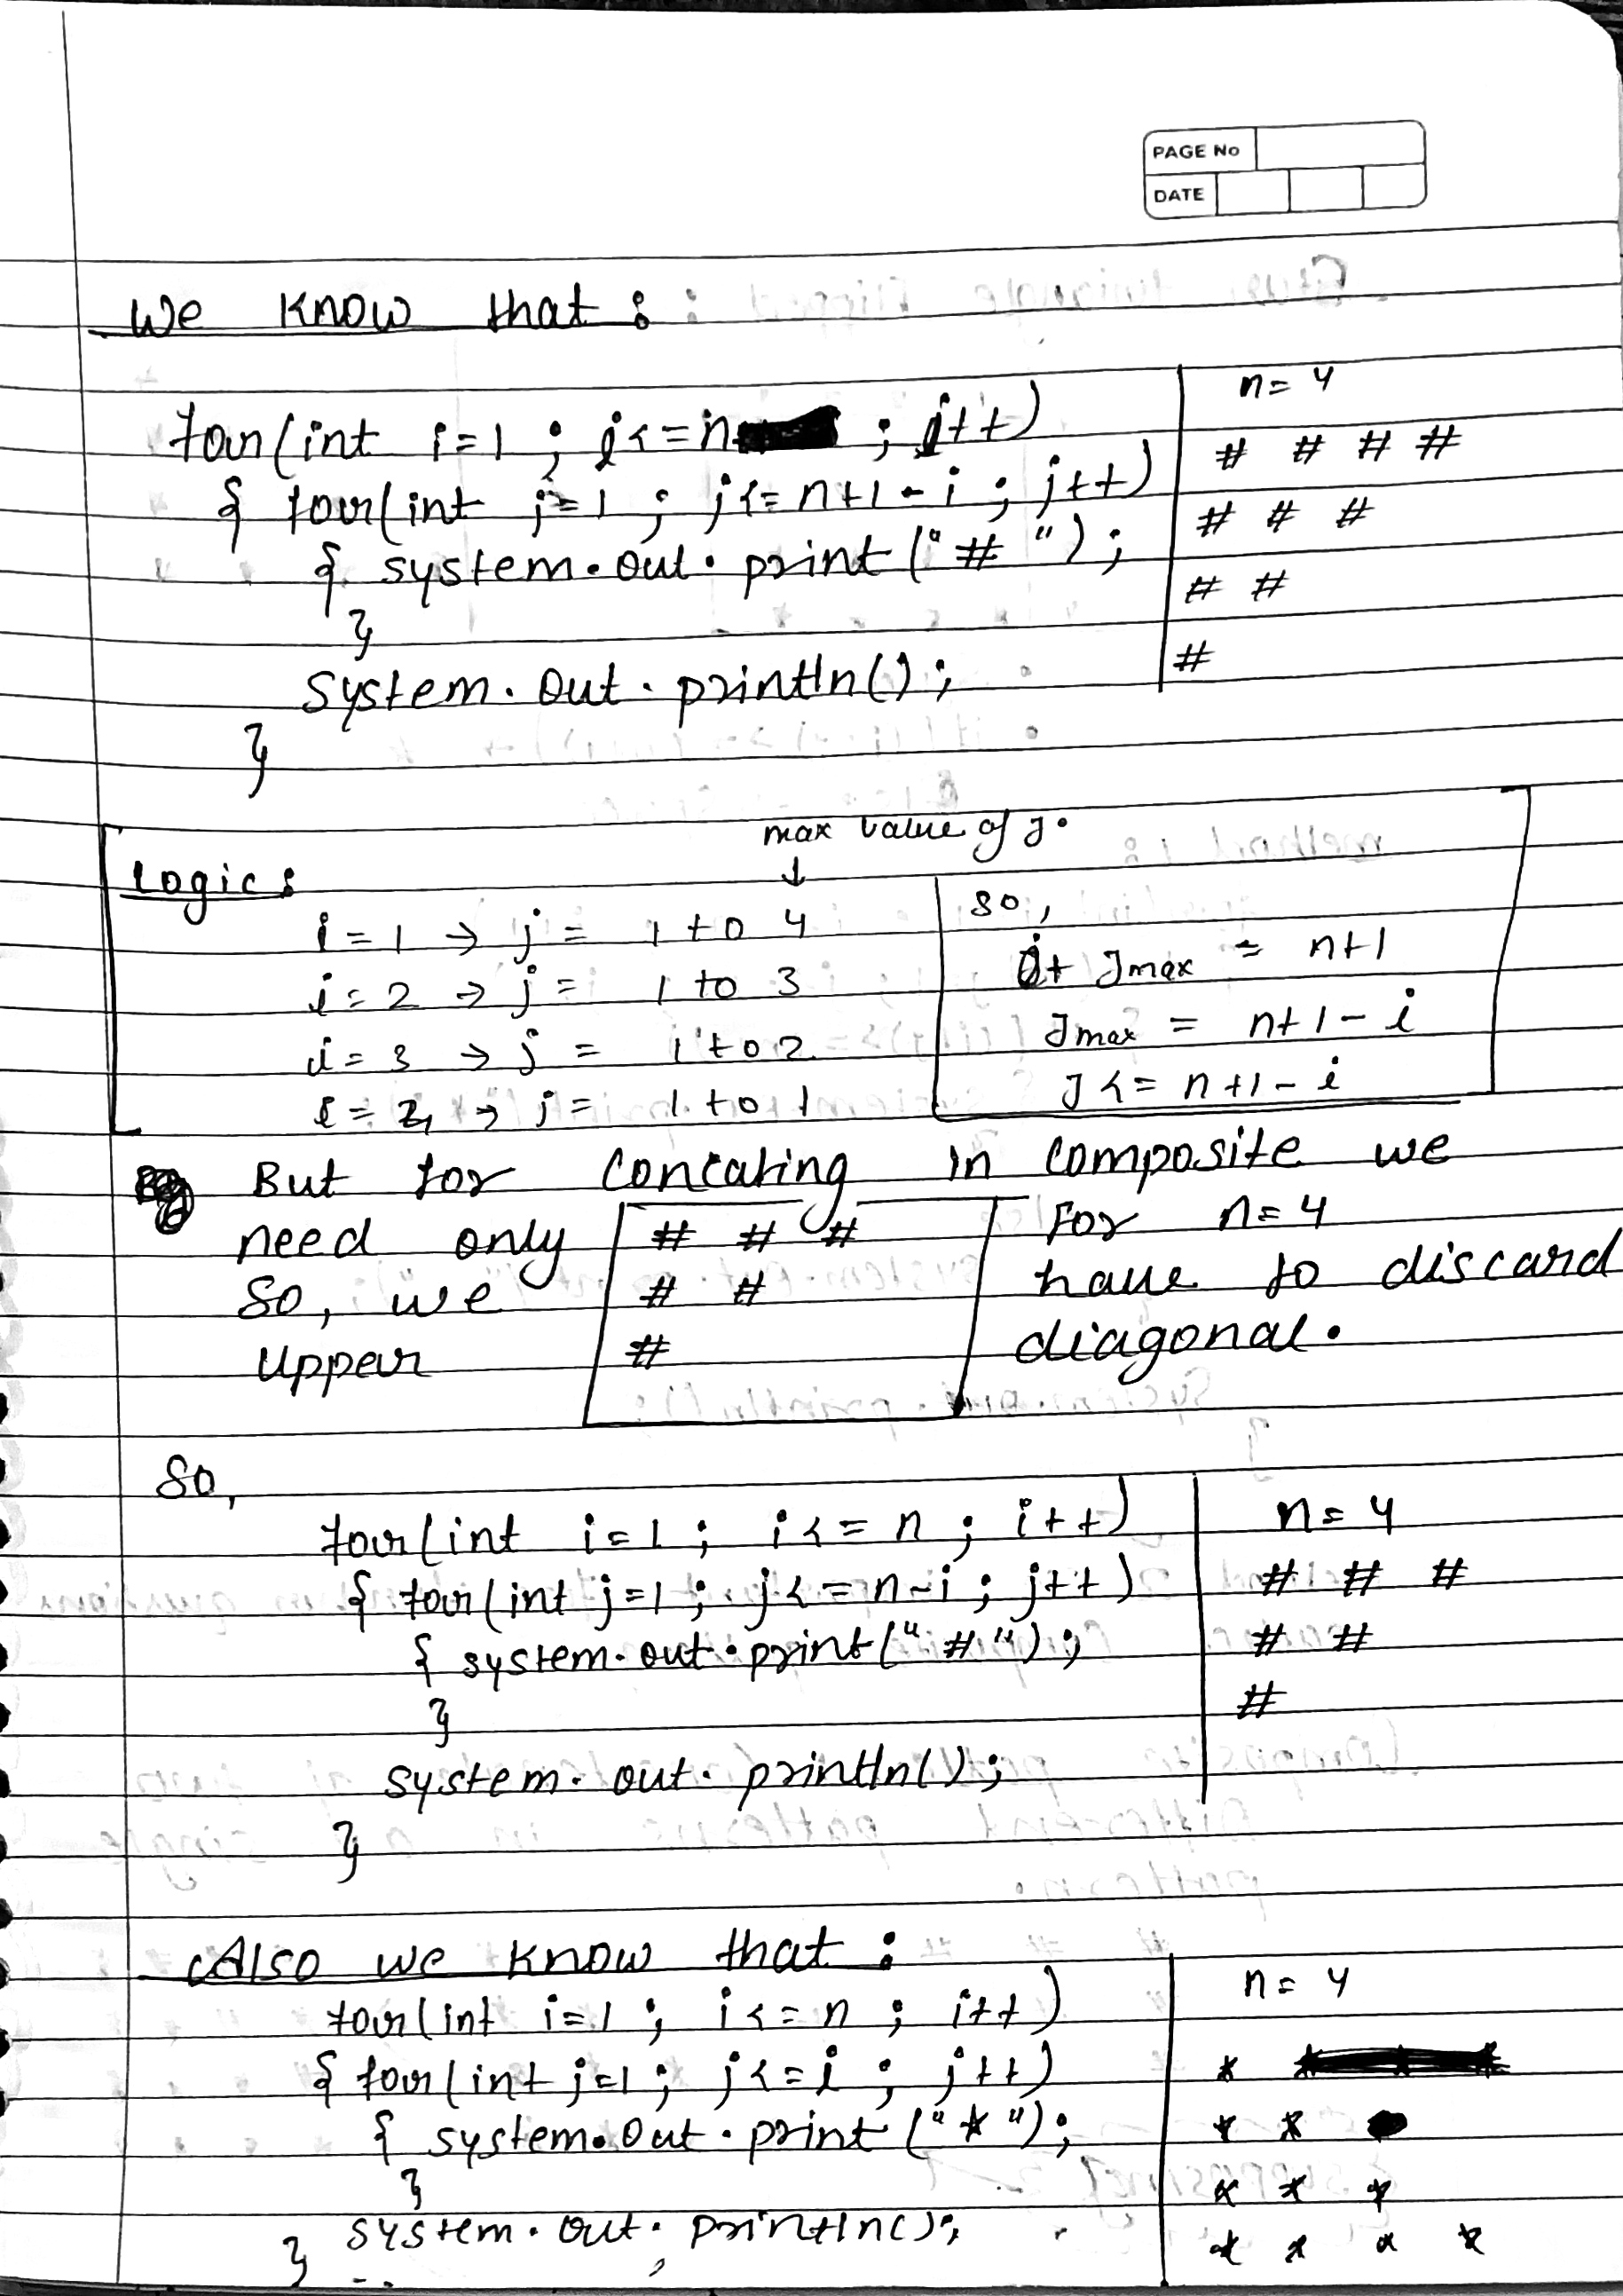 PAGE No
DATE
We know that :
for(int i=1 ; i<=n ; i++)
{ for(int j=1 ; j<=n+1-i ; j++)
{ system.out.print("# ");
}
System.out.println();
}
n=4
# # # #
# # #
# #
#
max value of J.
↓
Logic :
i=1 → j = 1 to 4
i=2 → j = 1 to 3
i=3 → j = 1 to 2
i=4 → j = 1 to 1
so,
i+Jmax = n+1
Jmax = n+1-i
J<= n+1-i
But for Concating in composite we
need only # # # For n=4
So, we # # have to discard
Upper # diagonal.
So,
for(int i=1 ; i<=n ; i++)
{ for(int j=1 ; j<=n-i ; j++)
{ system.out.print("#");
}
system.out.println();
}
n=4
# # #
# #
#
Also we know that :
for(int i=1 ; i<=n ; i++)
{ for(int j=1 ; j<=i ; j++)
{ system.out.print("*");
}
} system.out.println();
n=4
*
* *
* * *
* * * *